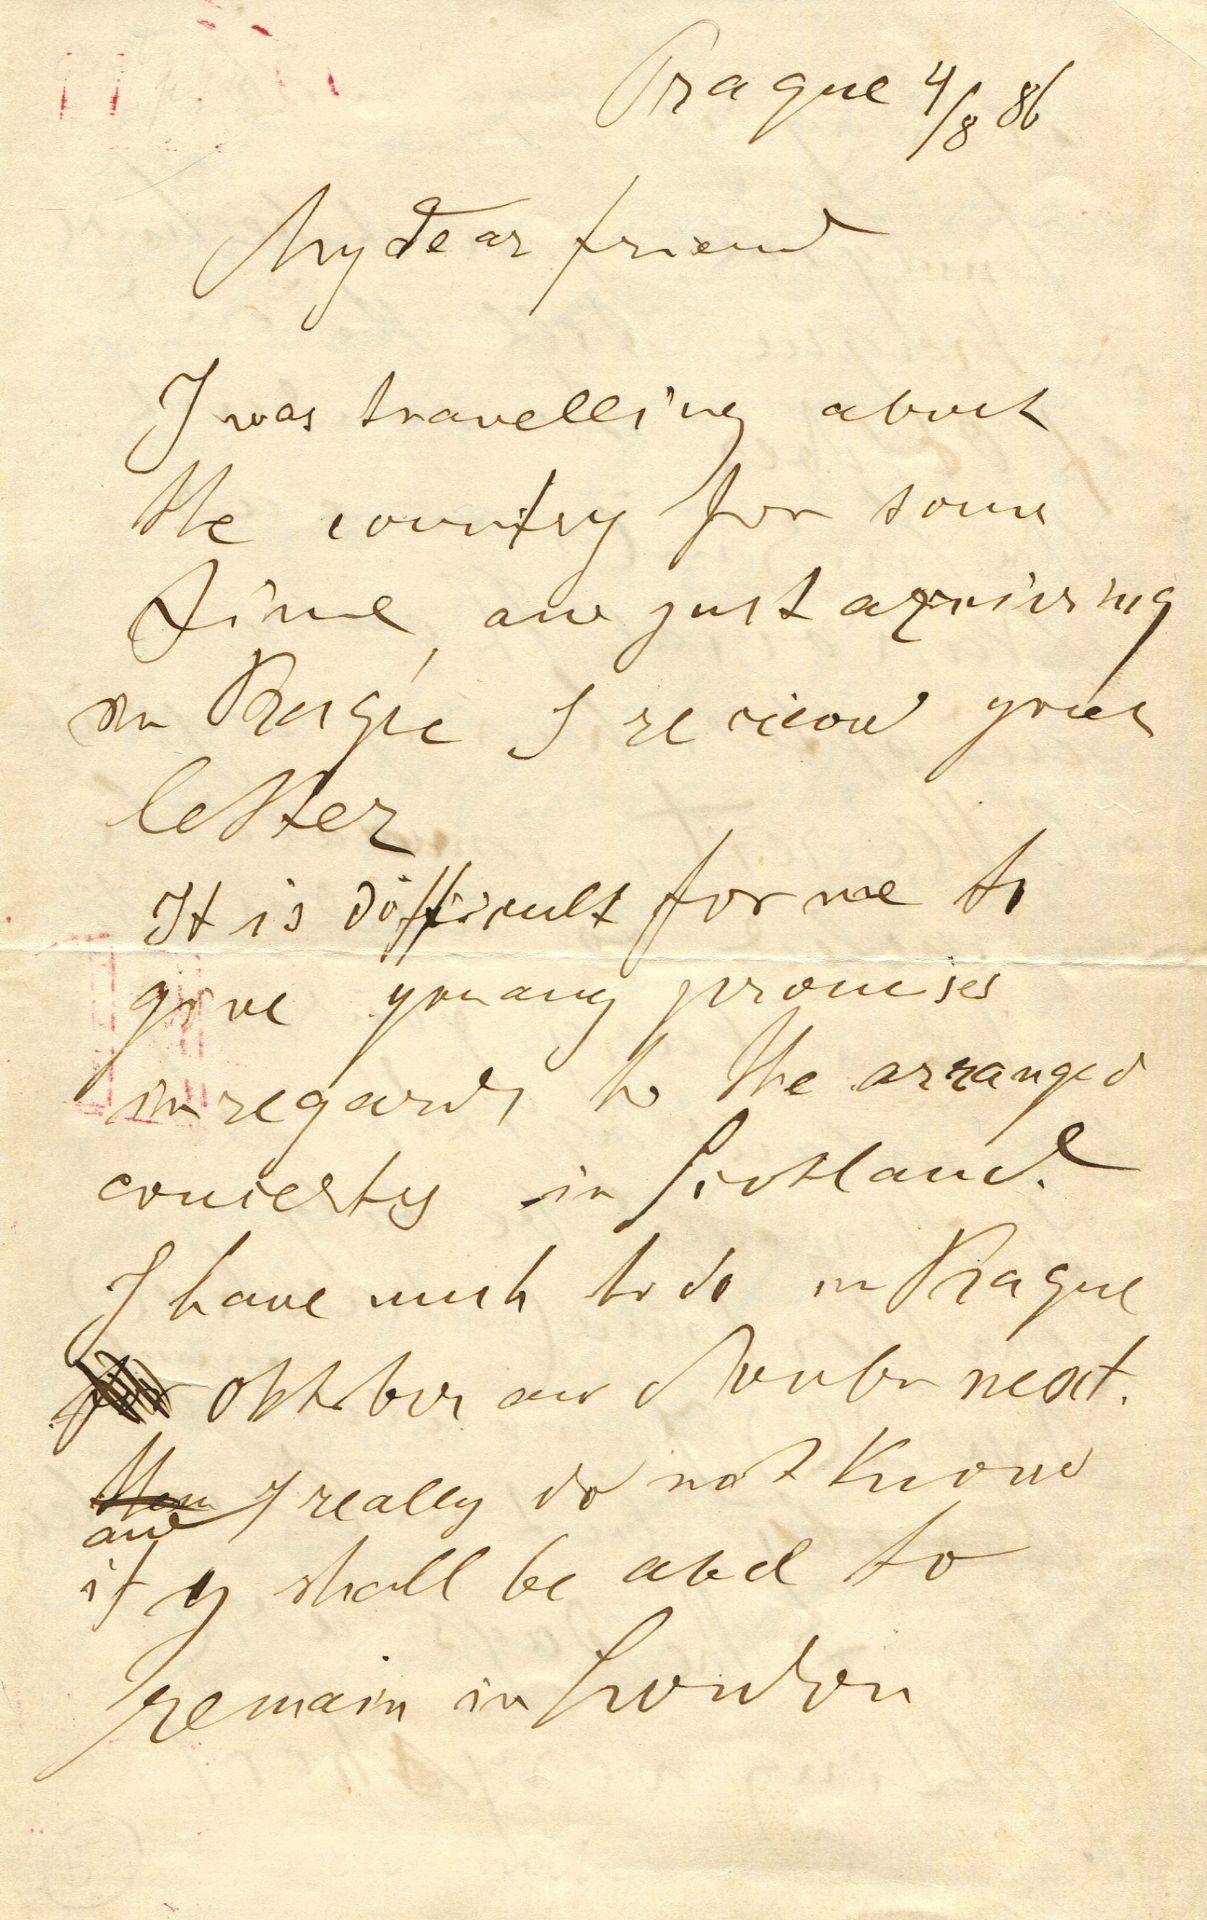 Prague 4/8 86
My dear friend
I was travelling about
the country for some
time, and just arriving
in Prague I recieved your
letter
It is difficult for me to
give you any promises
in regards to the arranged
concerts in Scotland.
I have much to do in Prague
oktober and next.
and I really do not know
if I shall be abel to
remain in London